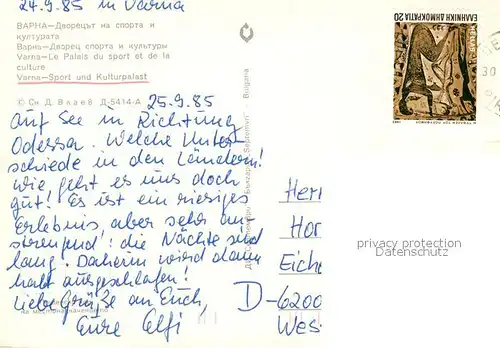 24.9.85 in Varna
ВАРНА—Дворецът на спорта и
културата
Варна—Дворец спорта и культуры
Varna—Le Palais du sport et de la
culture
Varna—Sport und Kulturpalast
© Сн Д. Влаев Д-5414-А
25.9.85
auf See in Richtung
Odessa. Welche Unter
schiede in den Ländern!
Wie geht es uns doch
gut! Es ist ein riesiges
Erlebnis, aber sehr an-
sierend! die Nächte sind
lang. Daheim wird dann
halt ausgeschlafen!
Liebe Grüße an Euch,
Eure Elfi
Bulgaria
Български
Septemvri
ΕΛΛΗΝΙΚΗ ΔΗΜΟΚΡΑΤΙΑ 20
HELLAS
30
Herr
Hor
Eiche
D-6200
Wes
privacy protection
Datenschutz